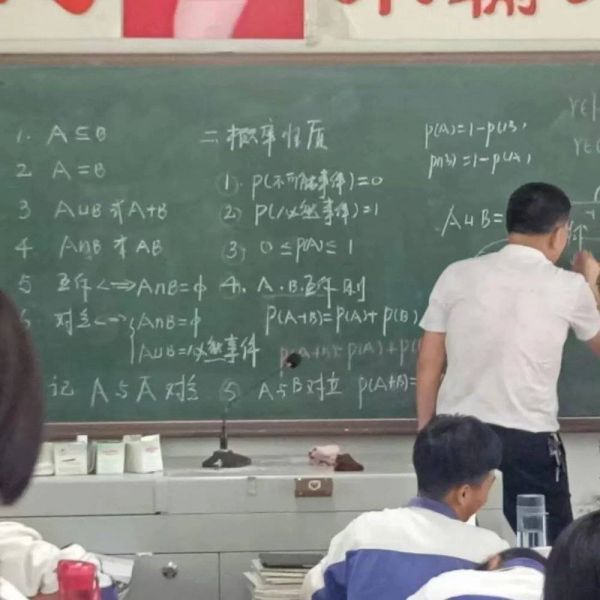 1. A⊆B
2 A=B
3 A∪B 或 A+B
4 A∩B 或 AB
5 互斥<=>A∩B=φ
6 对立<->{A∩B=φ
A∪B=必然事件
记 A与Ā对立
二 概率性质
①. P(不可能事件)=0
②. P(必然事件)=1
③. 0≤P(A)≤1
4. A.B.互斥 则
P(A+B)=P(A)+P(B)
P(A+B)=P(A)+P(
⑤ A与B对立 P(A+B)=
P(A)=1-P(B)
P(B)=1-P(A)
A∪B=